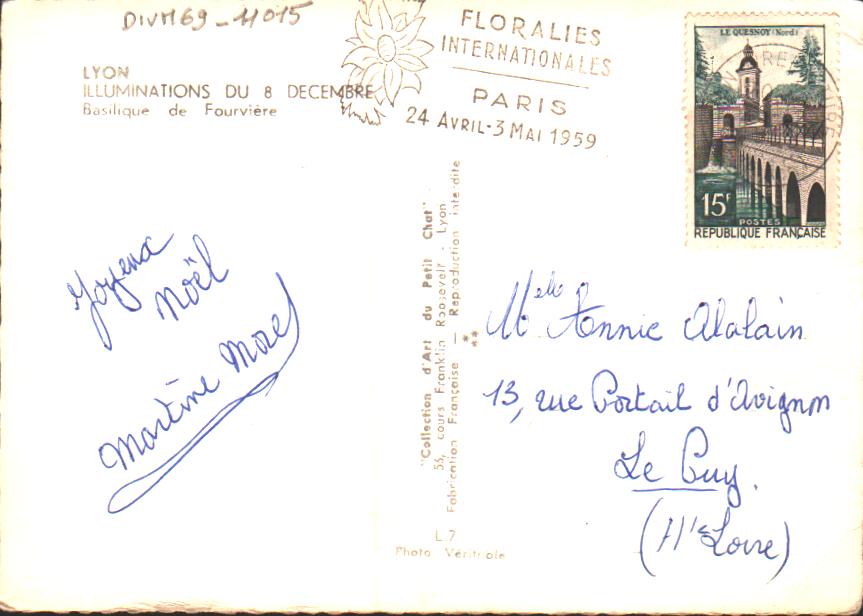 DIVM69-11015
LYON
ILLUMINATIONS DU 8 DECEMBRE
Basilique de Fourvière
FLORALIES
INTERNATIONALES
PARIS
24 AVRIL-3 MAI 1959
LE QUESNOY (Nord)
15F
POSTES
REPUBLIQUE FRANÇAISE
Joyeux
Noël
Martine Morel
"Collection d'Art du Petit Chat"
55, cours Franklin Roosevelt - Lyon
Fabrication Française — Reproduction interdite
L.7
Photo Véritable
Melle Annie Alalain
13, rue Portail d'Avignon
Le Puy.
(Hte Loire)